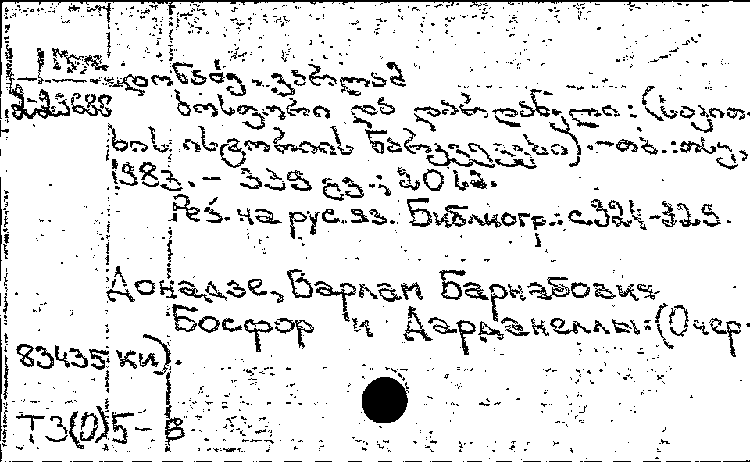 2-23688
დონაძე ვარლამ
ბოსფორი და დარდანელი: (საკით-
ხის ისტორიის ნარკვევები).-თბ.:თსუ,
1983.- 339 გვ.; 20 სმ.
Рез. на рус.яз. Библиогр.: с.324-329.
Донадзе, Варлам Барнабович
Босфор и Дарданеллы:(Очер-
83435 ки).
ТЗ(0)5-8